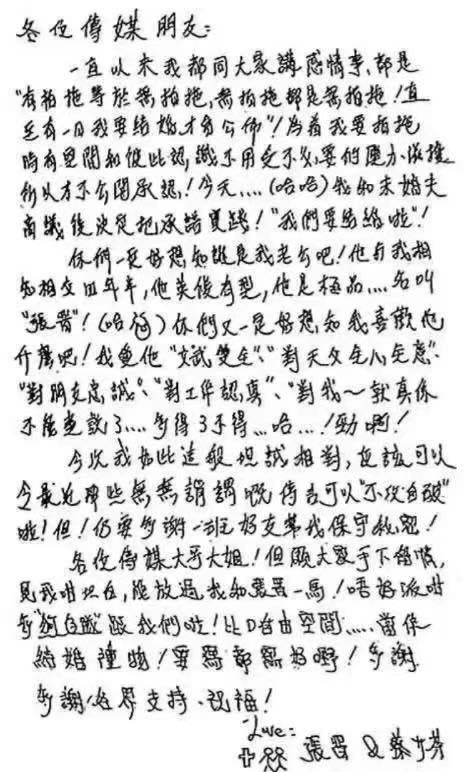 各位傳媒朋友:
一直以來我都同大家講,感情事,都是
"有拍拖等於無拍拖,無拍拖都是無拍拖!直
至有一日我要結婚才有公佈"!為着我要拍拖
時有空間和彼此認識不用受不必要的壓力傷據
所以才不公開承認!今天....(哈哈)我和未婚夫
商議後決定把承諾實踐!"我們要結婚啦"!
你們一定好想知誰是我老公吧!他與我相
知相交四年半,他英俊有型,他是極品....名叫
"張晋"!(哈哈)你們又一定好想知我喜歡他
什麼吧!我愛他"文武雙全"、"對天父全心全意"、
"對朋友忠誠"、"對工作認真"、"對我～就真係
不能盡說了....多得3不得...哈...!勁啊!
今次我如此這般坦誠相對,應該可以
令最近那些無無謂謂嘅傳言可以"不攻自破"
啦!但!仍要多謝一班好友幫我保守秘密!
各位傳媒大哥大姐!但願大家手下留情,
見我咁坦白,能放過我和張晋一馬!唔好派咁
多"狗仔隊"跟我們啦!比D自由空間.....當係
結婚禮物!要寫都寫好嘢!多謝
多謝各界支持、祝福!
Love:
張晋 & 蔡少芬